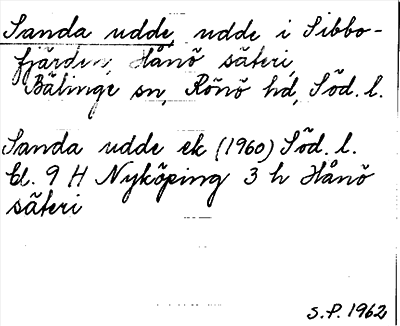 Sanda udde, udde i Sibbo-
fjärden, Hånö säteri,
Bälinge sn, Rönö hd, Söd. l.
Sanda udde ek (1960) Söd. l.
El. 9 H Nyköping 3 h Hånö
säteri
S.P. 1962